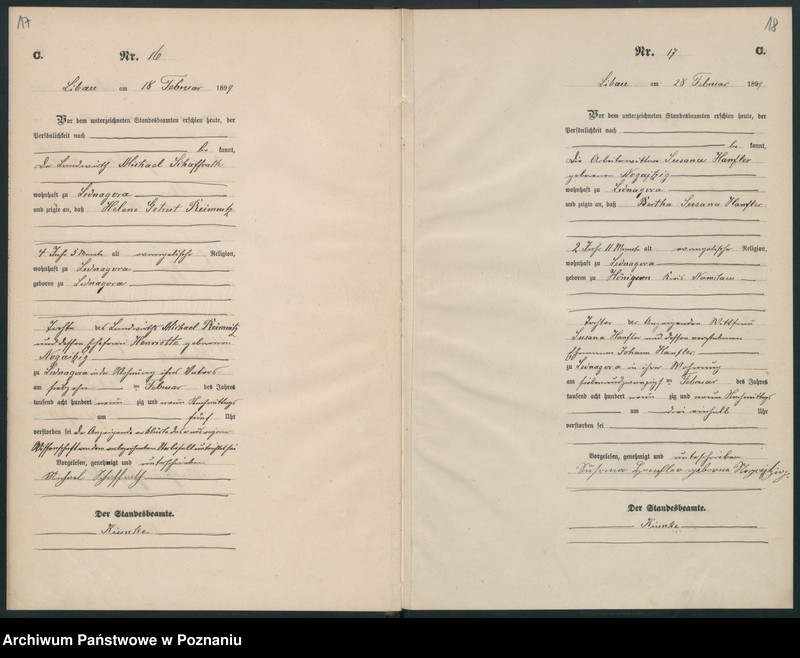 17
C.
Nr. 16
Libau am 18 Februar 1899
Vor dem unterzeichneten Standesbeamten erschien heute, der
Persönlichkeit nach
be kannt,
Der Landwirth Michael Schaffrath
wohnhaft zu Lednagora
und zeigte an, daß Helene Reimnitz
4 Jahr 5 Monate alt evangelischer Religion,
wohnhaft zu Lednagora
geboren zu Lednagora
Tochter des Landwirths Michael Reimnitz
und dessen Ehefrau Henriette geborenen
zu Lednagora in der Wohnung ihres Vaters
am ten Februar des Jahres
tausend acht hundert neun zig und neun Nachmittags
um fünf Uhr
verstorben sei Der Anzeigende erklärte daß er aus eigener
Wissenschaft von dem Sterbefall unterrichtet sei
Vorgelesen, genehmigt und unterschrieben
Michael Schaffrath
Der Standesbeamte.
18
Nr. 17
C.
Libau am 28 Februar 1899
Vor dem unterzeichneten Standesbeamten erschien heute, der
Persönlichkeit nach
be kannt,
Die Arbeiterwittwe Susana Hanfler
geborenen
wohnhaft zu Lednagora
und zeigte an, daß Bertha Susana Hanfler
2 Jahr 11 Monate alt evangelischer Religion,
wohnhaft zu Lednagora
geboren zu Kreis Namslau
Tochter der Anzeigenden Wittfrau
Susana Hanfler und dessen verstorbenen
Ehemann Johann Hanfler
zu Lednagora in ihrer Wohnung
am siebenundzwanzigsten Februar des Jahres
tausend acht hundert neun zig und neun Nachmittags
um drei einhalb Uhr
verstorben sei
Vorgelesen, genehmigt und unterschrieben
geborne
Der Standesbeamte.
Archiwum Państwowe w Poznaniu